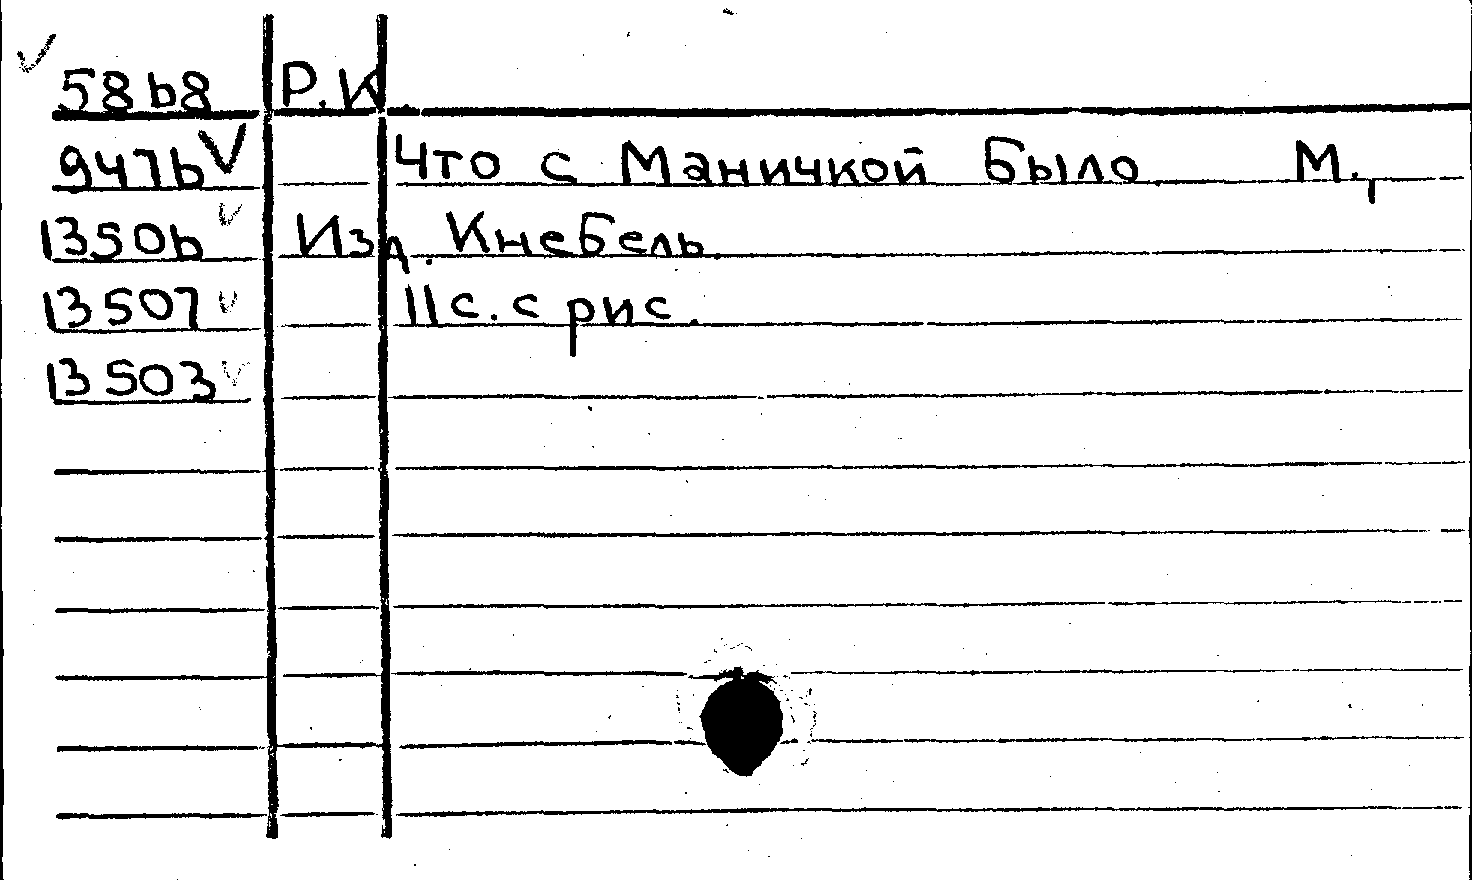 5868 Р.К.
9476 Что с Маничкой было М.,
13506 Изд. Кнебель.
13507 11с. с рис.
13503